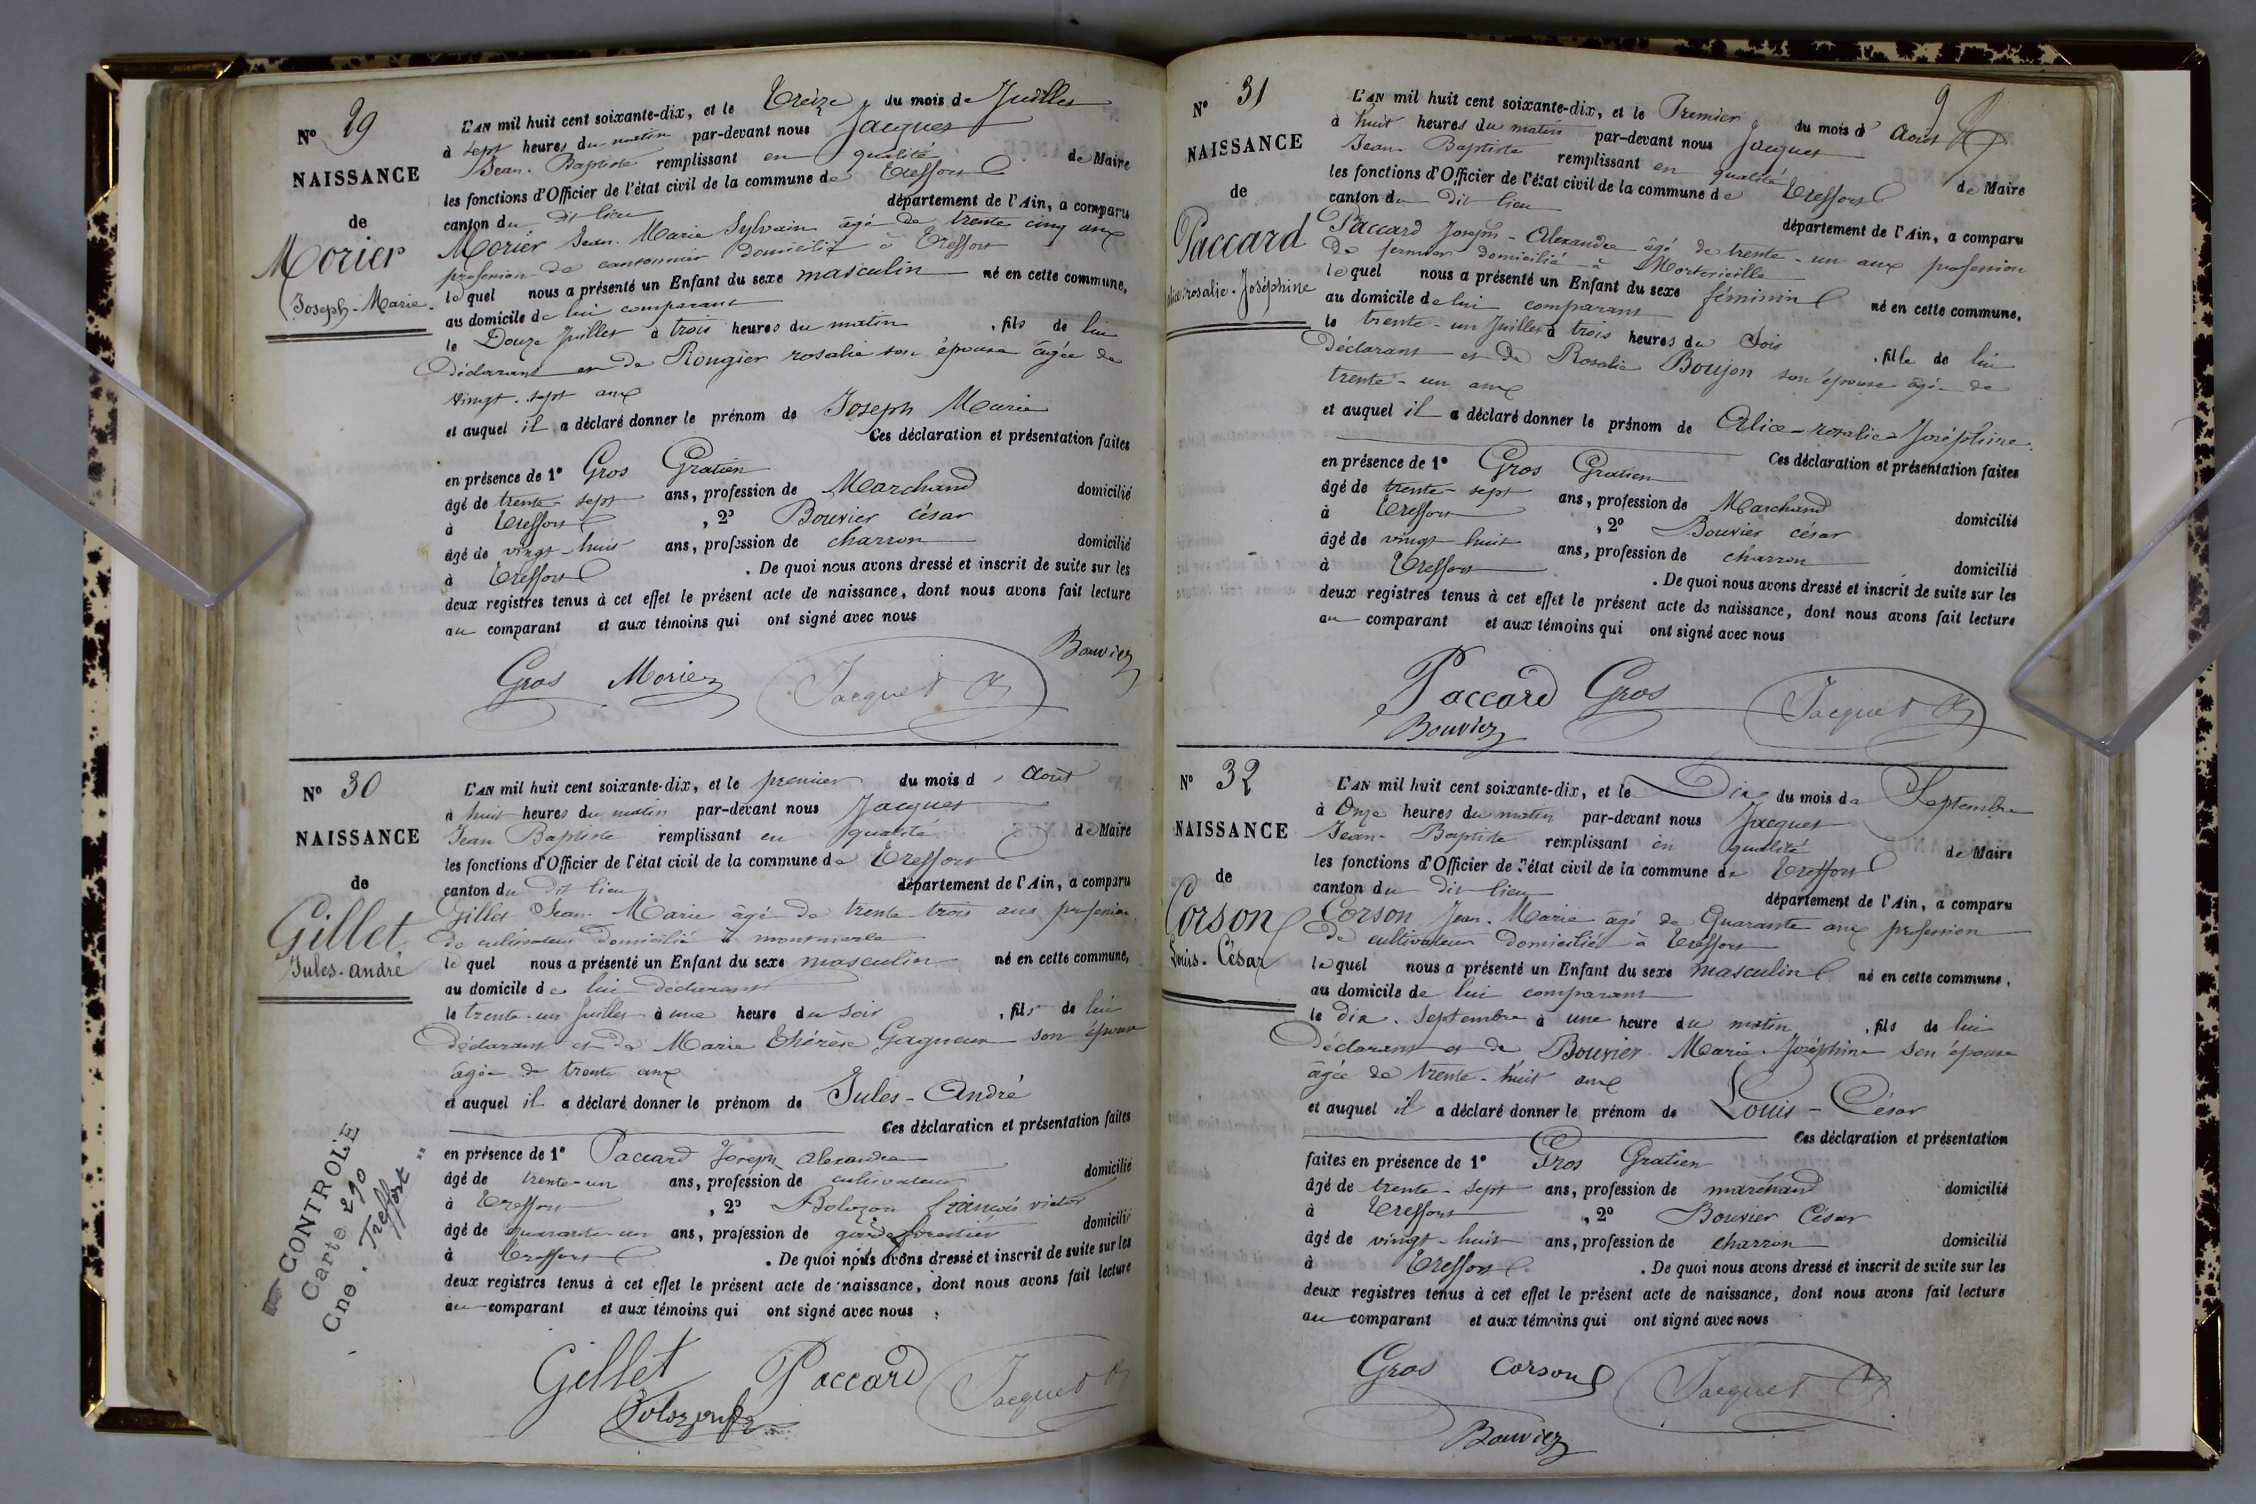 N° 29
NAISSANCE
de
Morier
Joseph-Marie
L'AN mil huit cent soixante-dix, et le Treize du mois de Juillet
à sept heures du matin par-devant nous Jacquet
Jean-Baptiste remplissant en qualité de Maire
les fonctions d'Officier de l'état civil de la commune de Treffort
canton du dit lieu département de l'Ain, a comparu
Morier Jean-Marie Sylvain âgé de trente cinq ans
profession de cantonnier domicilié à Treffort
lequel nous a présenté un Enfant du sexe masculin né en cette commune,
au domicile de lui comparant
le Douze Juillet à trois heures du matin, fils de lui
déclarant et de Rongier rosalie son épouse âgée de
vingt-sept ans
et auquel il a déclaré donner le prénom de Joseph Marie
Ces déclaration et présentation faites
en présence de 1° Gros Gratien
âgé de trente-sept ans, profession de Marchand domicilié
à Treffort, 2° Bouvier César
âgé de vingt-huit ans, profession de charron domicilié
à Treffort. De quoi nous avons dressé et inscrit de suite sur les
deux registres tenus à cet effet le présent acte de naissance, dont nous avons fait lecture
au comparant et aux témoins qui ont signé avec nous
Bouvier
Gros Morier Jacquet
N° 30
NAISSANCE
de
Gillet
Jules-andré
L'AN mil huit cent soixante-dix, et le premier du mois d'Août
à huit heures du matin par-devant nous Jacquet
Jean Baptiste remplissant en qualité de Maire
les fonctions d'Officier de l'état civil de la commune de Treffort
canton du dit lieu département de l'Ain, a comparu
Gillet Jean-Marie âgé de trente trois ans profession
de cultivateur domicilié à montmerle
lequel nous a présenté un Enfant du sexe masculin né en cette commune,
au domicile de lui déclarant
le trente-un Juillet à une heure du soir, fils de lui
déclarant et de Marie Thérèse Gagneux son épouse
âgée de trente ans
et auquel il a déclaré donner le prénom de Jules-André
Ces déclaration et présentation faites
en présence de 1° Paccard Joseph alexandre
âgé de trente-un ans, profession de cultivateur domicilié
à Treffort, 2° Bolozon françois victor
âgé de quarante-un ans, profession de garde forestier domicilié
à Treffort. De quoi nous avons dressé et inscrit de suite sur les
deux registres tenus à cet effet le présent acte de naissance, dont nous avons fait lecture
au comparant et aux témoins qui ont signé avec nous.
Gillet Paccard Jacquet
Bolozon
CONTROLE
Carte 290
Cne. Treffort "
9
N° 31
NAISSANCE
de
Paccard
alice-rosalie-Joséphine
L'AN mil huit cent soixante-dix, et le Premier du mois d'Août
à huit heures du matin par-devant nous Jacquet
Jean-Baptiste remplissant en qualité de Maire
les fonctions d'Officier de l'état civil de la commune de Treffort
canton du dit lieu département de l'Ain, a comparu
Paccard Joseph-Alexandre âgé de trente-un ans profession
de fermier domicilié à
lequel nous a présenté un Enfant du sexe féminin né en cette commune,
au domicile de lui comparant
le trente-un Juillet à trois heures du Soir, fille de lui
déclarant et de Rosalie Boujon son épouse âgée de
trente-un ans
et auquel il a déclaré donner le prénom de Alice-rosalie Joséphine
Ces déclaration et présentation faites
en présence de 1° Gros Gratien
âgé de trente-sept ans, profession de Marchand domicilié
à Treffort, 2° Bouvier césar
âgé de vingt huit ans, profession de charron domicilié
à Treffort. De quoi nous avons dressé et inscrit de suite sur les
deux registres tenus à cet effet le présent acte de naissance, dont nous avons fait lecture
au comparant et aux témoins qui ont signé avec nous
Paccard Gros Jacquet
Bouvier
N° 32
NAISSANCE
de
Corson
Louis-César
L'AN mil huit cent soixante-dix, et le Dix du mois de Septembre
à Onze heures du matin par-devant nous Jacquet
Jean-Baptiste remplissant en qualité de Maire
les fonctions d'Officier de l'état civil de la commune de Treffort
canton du dit lieu département de l'Ain, a comparu
Corson Jean-Marie âgé de Quarante ans profession
de cultivateur domicilié à Treffort
lequel nous a présenté un Enfant du sexe masculin né en cette commune,
au domicile de lui comparant
le dix-Septembre à une heure du matin, fils de lui
déclarant et de Bouvier Marie-Joséphine son épouse
âgée de trente-huit ans
et auquel il a déclaré donner le prénom de Louis-César
Ces déclaration et présentation
faites en présence de 1° Gros Gratien
âgé de trente-sept ans, profession de marchand domicilié
à Treffort, 2° Bouvier César
âgé de vingt-huit ans, profession de charron domicilié
à Treffort. De quoi nous avons dressé et inscrit de suite sur les
deux registres tenus à cet effet le présent acte de naissance, dont nous avons fait lecture
au comparant et aux témoins qui ont signé avec nous
Gros Corson Jacquet
Bouvier